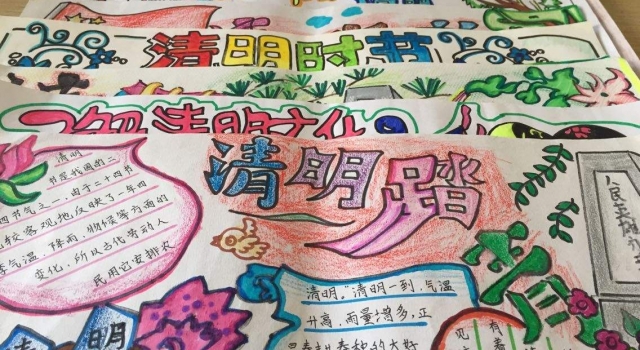 清明时节
清明文化
清明踏
青
清明
节是我国的二
四节气之一,由于二十四节
比较客观地反映了一年四
季气温、降雨、物候等方面的
变化,所以古代劳动人
民用它安排农
清明。"清明一到,气温
升高,雨量增多,正
是春耕春种的大好
人民英雄
明
有
见